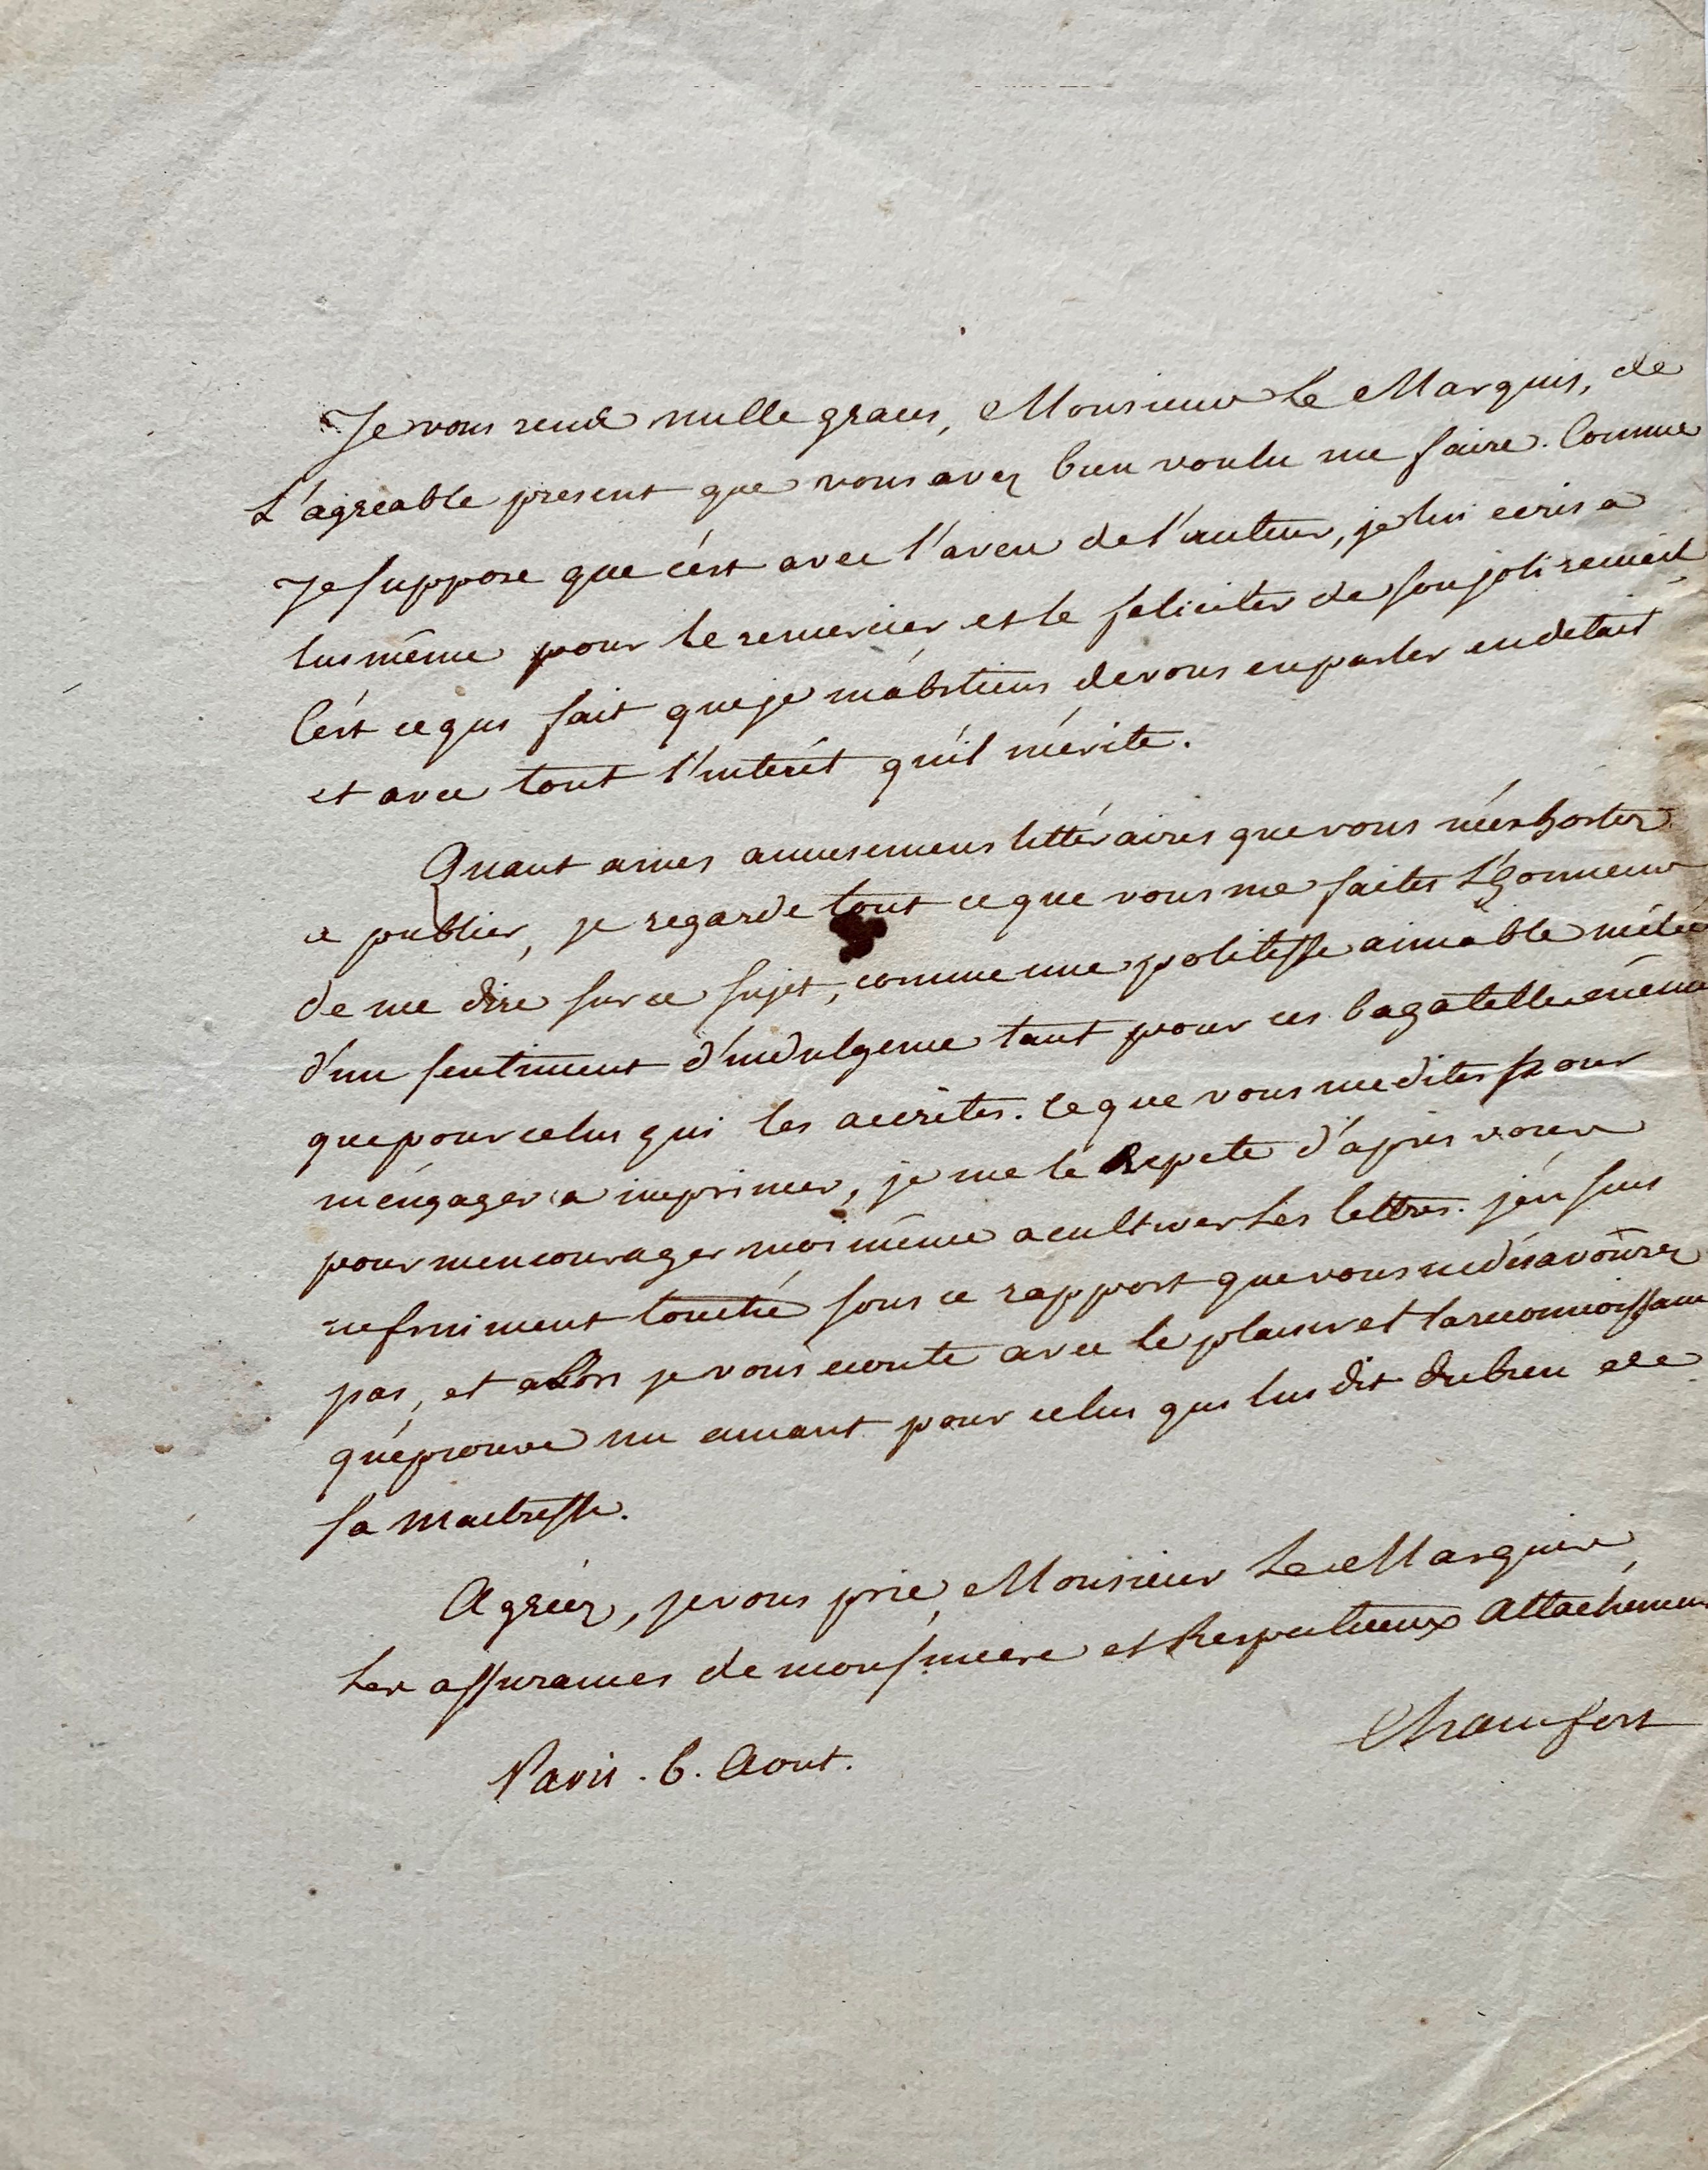 Je vous rends mille graces, Monsieur Le Marquis, de
L'agréable present que vous avez bien voulu me faire. Comme
Je suppose que c'est avec l'aveu de l'auteur, je lui ecris a
lui même pour le remercier et le feliciter de son joli recueil
C'est ce qui fait que je m'abstiens de vous en parler en detail
et avec tout l'interêt qu'il mérite.
Quant a mes amusemens littéraires que vous m'exhortez
a publier, je regarde tout ce que vous me faites L'honneur
de me dire sur ce sujet, comme une politesse aimable mêlée
d'un sentiment d'indulgence tant pour ces bagatelles
que pour celui qui les a ecrites. Ce que vous me dites pour
m'engager a imprimer, je me le Repete d'après vous
pour m'encourager moi même a cultiver Les lettres. j'en suis
infiniment touché sous ce rapport que vous ne désavoûrez
pas, et alors je vous ecoute avec le plaisir et la reconnoissance
qu'éprouve un amant pour celui qui lui dit du bien de
sa Maitresse.
Agréez, je vous prie, Monsieur Le Marquis,
Les assurances de mon sincere et Respectueux Attachement
Chamfort
Paris. 6. Aout.